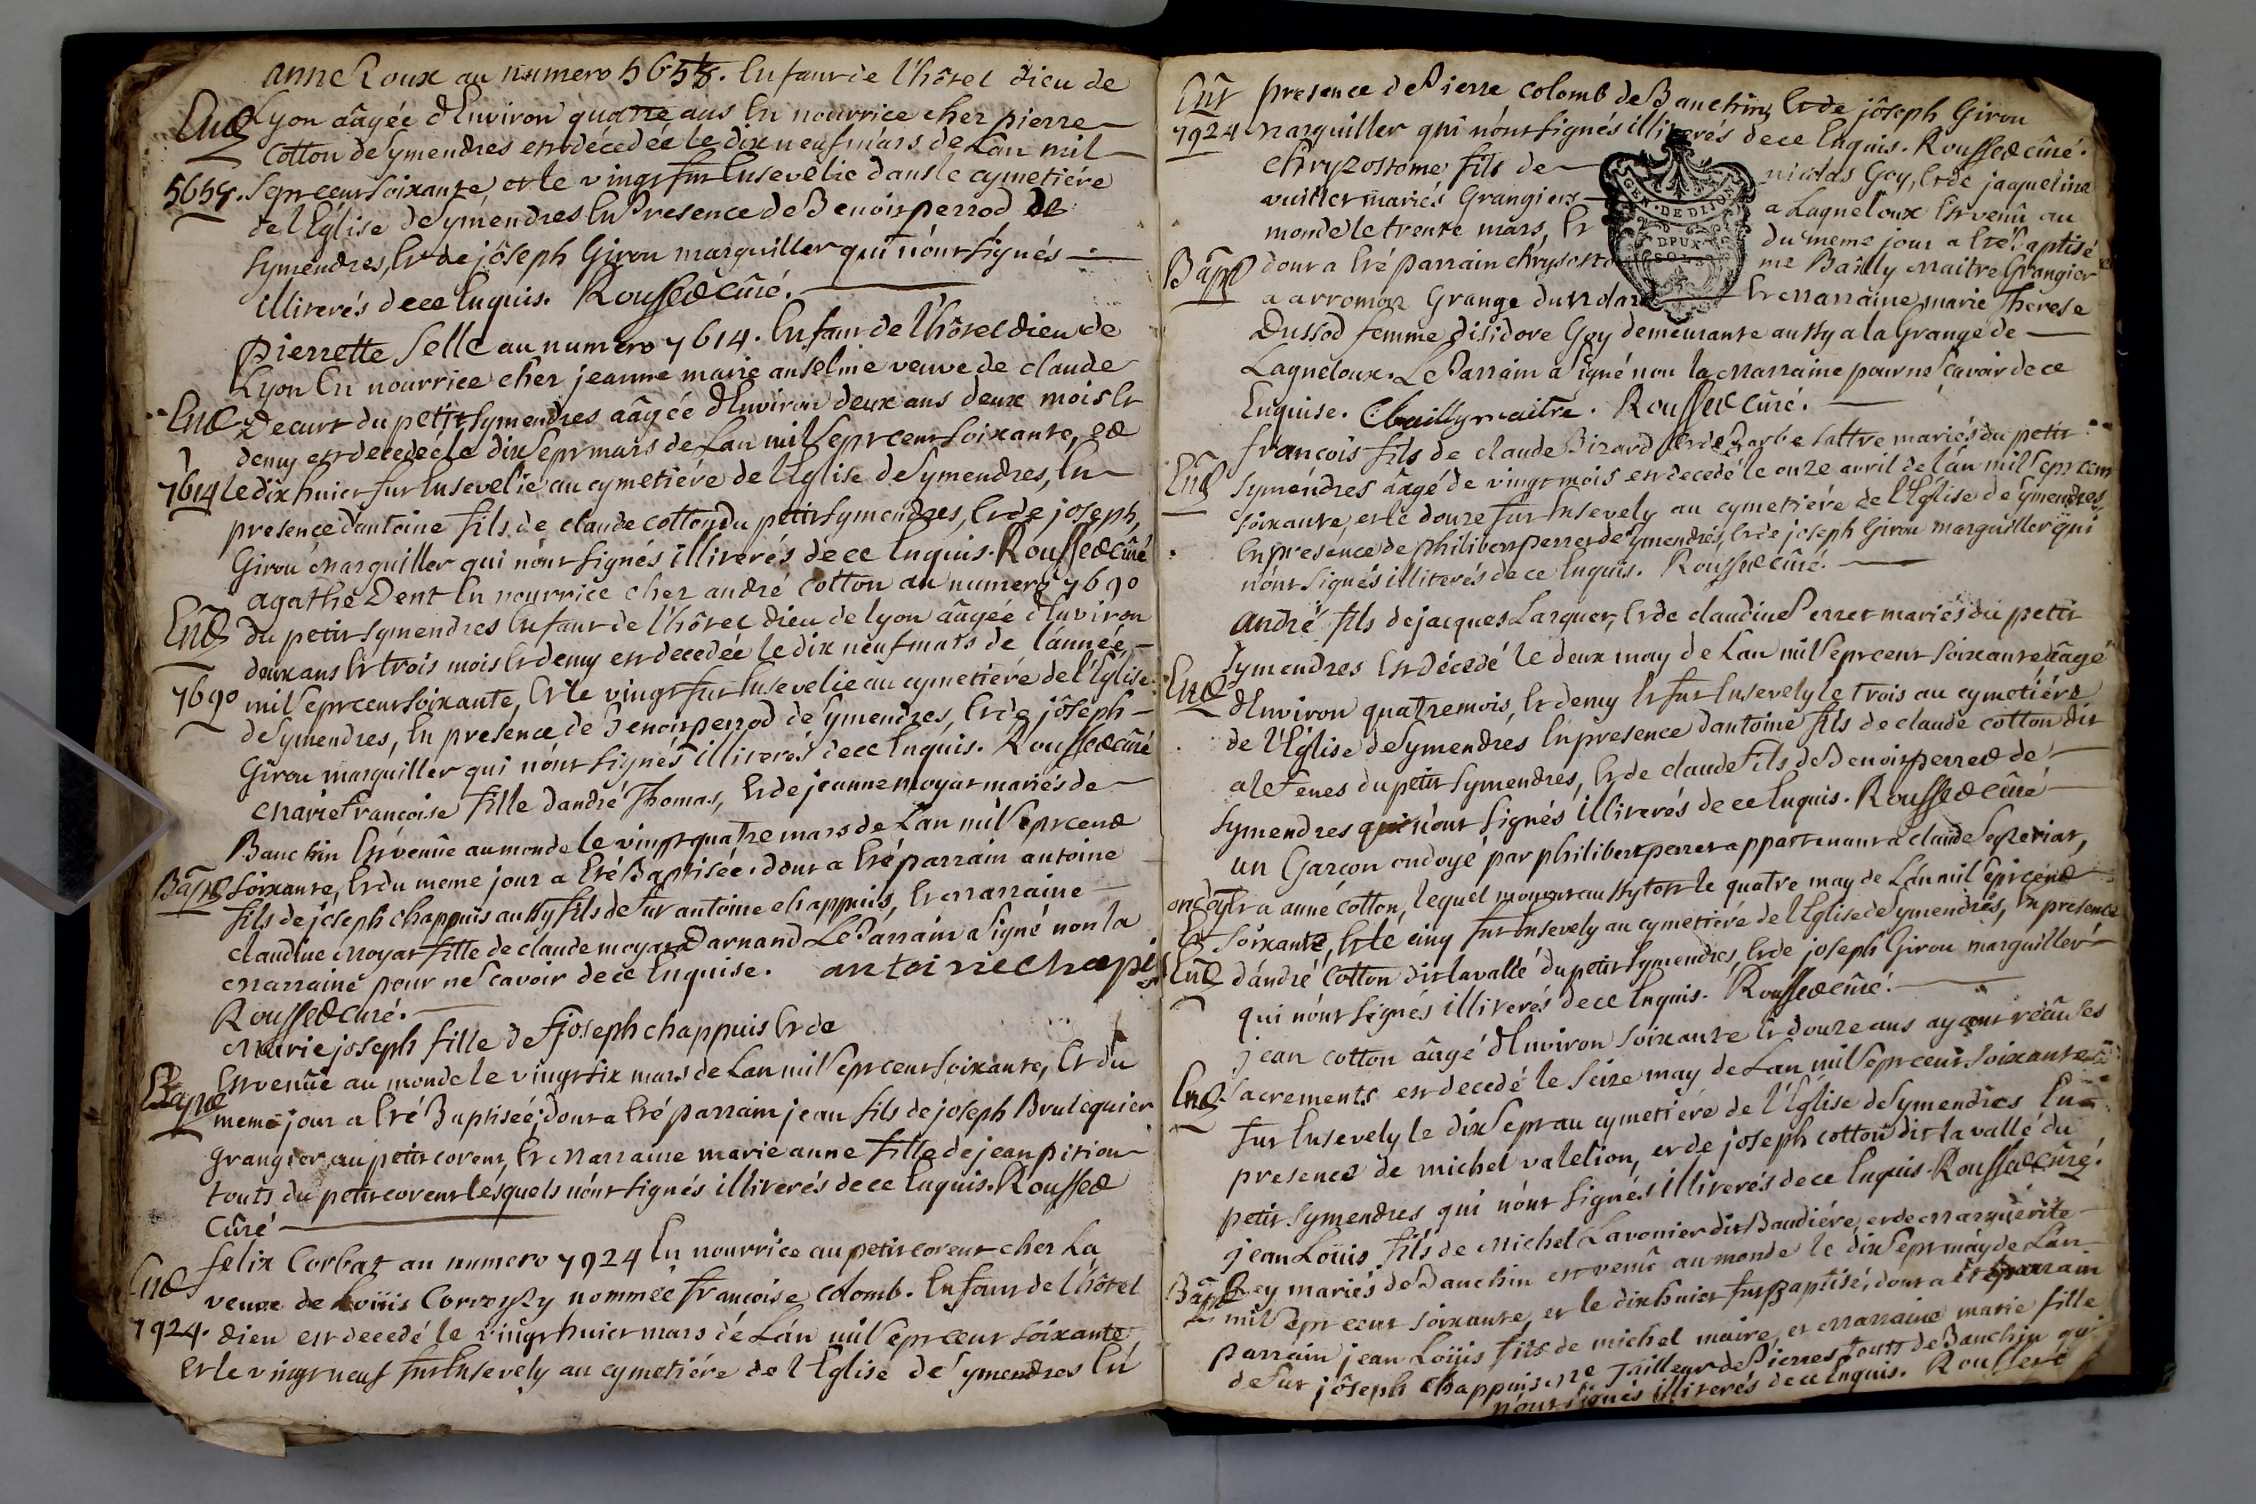 anne Roux au numero 5658. Enfant de l'hôtel dieu de
End Lyon ââgée d'Environ quatre ans En nourrice chez pierre
Cotton de Symendres est décedée le dix neuf mars de L'an mil
5658. Sept cent soixante, et le vingt fut Ensevelie dans le cymetiére
de l'Eglise de Symendres En Presence de Benoist perrod de
Symendres, Et de jôseph Girou marguiller qui n'ont signés
illiterés de ce Enquis. Roussed Cûré.
Pierrette Selle au numero 7614. Enfant de l'hôtel dieu de
Lyon En nourrice chez jeanne marie anselme veuve de claude
End Decurt du petit Symendres ââgée d'Environ deux ans deux mois Et
demy est decedée le dix Sept mars de L'an mil Sept cent Soixante, ed
7614 le dix huict fut Ensevelie au cymetiére de l'Eglise de Symendres, En
presence d'antoine fils de claude cotton du petit Symendres, Et de joseph
Girou Marguiller qui n'ont signés illiterés de ce Enquis. Roussed cûré
agathe Dent En nourrice chez andré Cotton au numero 7690
End du petit Symendres Enfant de l'hôtel dieu de lyon ââgée d'Environ
deux ans Et trois mois Et demy est decedée le dix neuf mars de l'année
7690 mil Sept cent soixante, Et le vingt fut Ensevelie au cymetiére de l'Eglise
de Symendres, En presence de Benoist perrod de Symendres, Et de jôseph
Girou marguiller qui n'ont signés illiterés de ce Enquis. Roussed cûré
Marie françoise fille d'andré Thomas, Et de jeanne moyat mariés de
Banchin Est venûe au monde le vingt quatre mars de L'an mil Sept cend
Bapt Soixante, Et du meme jour a Eté Baptisée dont a Eté parrain antoine
fils de joseph chappuis aussy fils de fut antoine chappuis, Et Marraine
claudine Moyat fille de claude moyat Darnand Le Parrain a Signé non la
Marraine pour ne Scavoir de ce Enquise. antoine chapis
Roussed curé.
Marie joseph fille de joseph chappuis Et de
Bapt Est venûe au monde le vingt six mars de L'an mil Sept cent soixante, Et du
meme jour a Eté Baptisée; dont a Eté parrain jean fils de joseph Brulequier
grangier au petit corent, Et Marraine marie anne fille de jean pition
touts du petit corent lesquels n'ont signés illiterés de ce Enquis. Roussed
Cûré
felix Corbat au numero 7924 En nourrice au petit corent chez La
End veuve de Loüis nommée françoise colomb. Enfant de l'hôtel
7924. dieu est decedé le vingt huict mars de L'an mil Sept cent soixante
Et le vingt neuf fut Ensevely au cymetiére de l'Eglise de Symendres En
Ent presence de Pierre colomb de Banchin, Et de jôseph Girou
7924 Marguiller qui n'ont signés illiterés de ce Enquis. Roussed cûré.
chryzostome fils de nicolas Goy, Et de jaqueline
vuillet mariés Grangiers a Laqueloux Est venû au
monde le trente mars, Et du meme jour a Eté Baptisé
Bapt dont a Eté Parrain chrysostome Bailly Maitre Grangier
a arromas Grange Et Marraine marie Therese
GEN. DE DIJON
DEUX
SOLS
Dussod femme d'isidore Goy demeurante aussy a la Grange de
Laqueloux. Le Parrain a signé non la Marraine pour ne Scavoir de ce
Enquise. Cbailly maitre. Roussed Cûré.
françois fils de claude Bizard Et de Barbe Lattre mariés du petit
End Symendres ââgé de vingt mois est decedé le onze avril de l'an mil Sept cent
Soixante, et le douze fut Ensevely au cymetiére de l'Eglise de Symendres,
En presence de philibert perret de Symendres, Et de joseph Girou marguiller qui
n'ont signés illiterés de ce Enquis. Roussed cûré.
andré fils de jacques Larquer, Et de claudine Perret mariés du petit
Symendres Est Décedé le deux may de L'an mil Sept cent Soixante ââgé
End d'Environ quatre mois, Et demy Et fut Ensevely le trois au cymetiére
de l'Eglise de Symendres En presence d'antoine fils de claude cotton dit
alefenes du petit Symendres, Et de claude fils de Benoist perred de
Symendres qui n'ont signés illiterés de ce Enquis. Roussed cûré
un Garçon ondoyé par philibert perret appartenant a claude Segteriat,
ondoy Et a anne Cotton, lequel mourut aussytost le quatre may de L'an mil Sept cend
& Soixante, Et le cinq fut Ensevely au cymetiére de l'Eglise de Symendres, En presence
End d'andré Cotton dit lavallé du petit Symendres, Et de joseph Girou marguiller
qui n'ont signés illiterés de ce Enquis. Roussed cûré.
jean cotton ââgé d'Environ Soixante Et douze ans ayant recûs les
End Sacrements est decedé le Seize may de L'an mil Sept cent Soixante
fut Ensevely le dix Sept au cymetiére de l'Eglise de Symendres En
presence de michel valetion, et de joseph cotton dit la vallé du
petit Symendres qui n'ont signés illiterés de ce Enquis. Roussed Cûré.
jean Loüis fils de Michel Lavenier dit Baudiére, et de Marguerite
Bapt Rey mariés de Banchin est venû au monde le dix Sept may de L'an
mil Sept cent soixante, et le dix huict fut Baptisé, dont a Eté parrain
Parrain jean Loüis fils de michel maire, et Marraine marie fille
de fut jôseph Chappuis Tailleur de Pierres touts de Banchin qui
n'ont signés illiterés de ce Enquis. Roussed